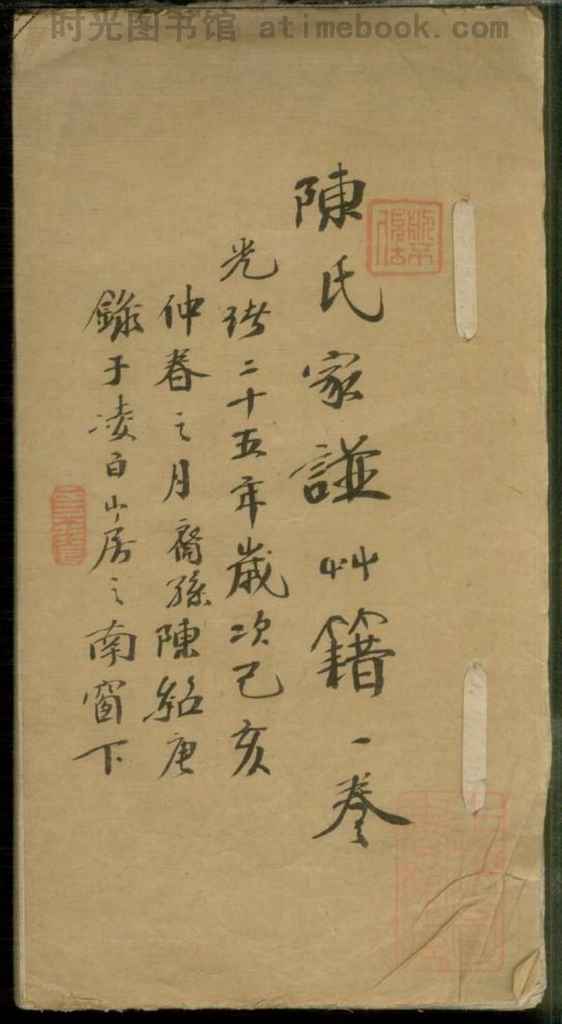 时光图书馆 atimebook.com
陳氏家譜艸籍一卷
光緒二十五年歲次己亥
仲春之月裔孫陳紹唐
錄于凌白山房之南窗下